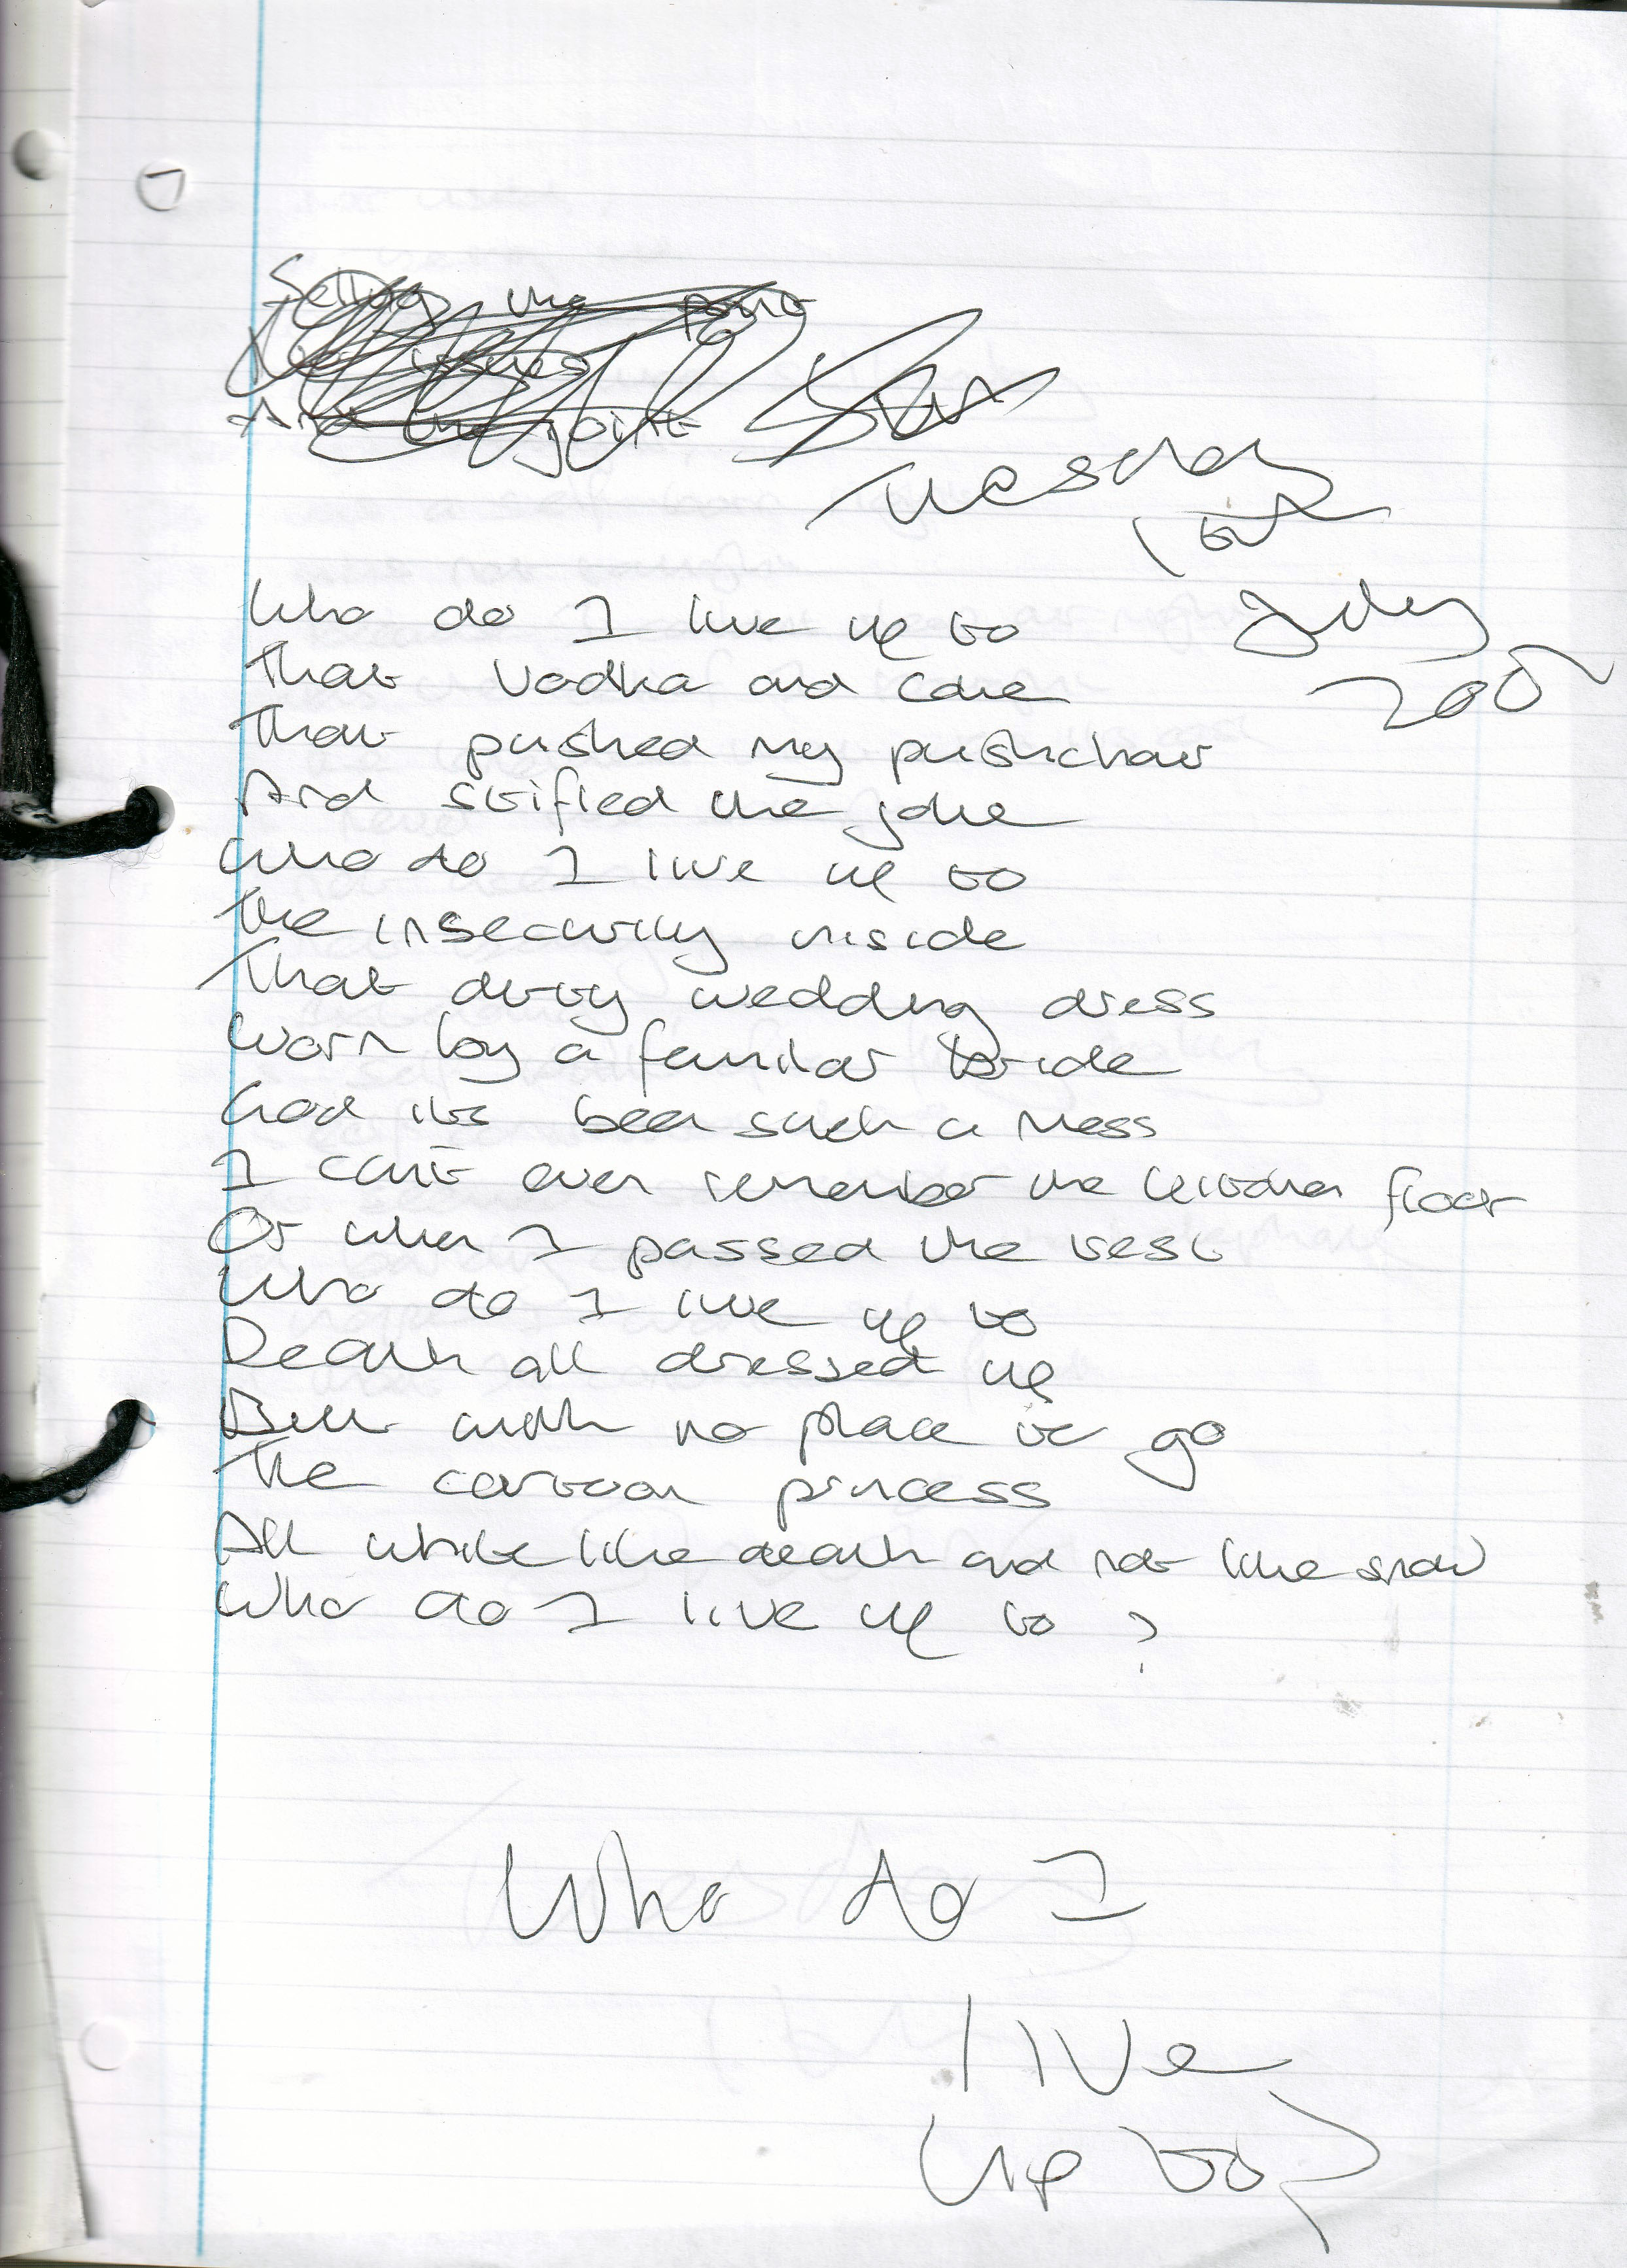 7
Selling the
issues
And the joint
Tuesday
July
Who do I live up to
That Vodka and Coke
That pushed my pushchair
And stifled the joke
Who do I live up to
The insecurity inside
That dirty wedding dress
Worn by a familar bride
God its been such a mess
I cant even remember the kitchen floor
Or when I passed the test
Who do I live up to
Death all dressed up
But with no place to go
The cartoon princess
All white like death and not like snow
Who do I live up to ?
Who do I
live
up to?